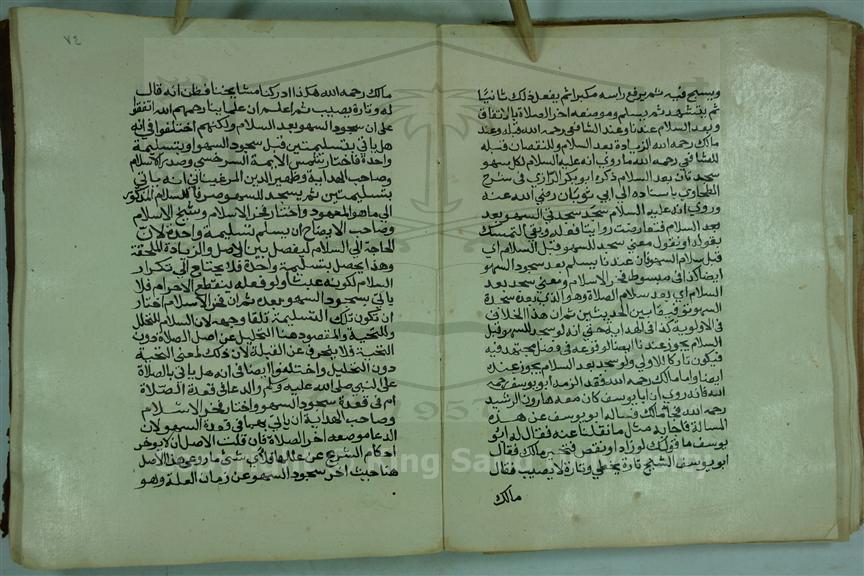 ويسبح فيه ثم يرفع راسه مكبرا ثم يفعل ذلك ثانيا
ثم يتشهد ثم يسلم وموضعه اخر الصلاة بالاتفاق
وبعد السلام عندنا وعند الشافعي رحمه الله قبله وعند
مالك رحمه الله الزيادة بعد السلام وللنقصان قبله
للشافعي رحمه الله ما روي انه عليه السلام لكل سهو
سجدتان بعد السلام ذكره ابو بكر الرازي في شرح
الطحاوي باسناده الى ابي ثوبان رضي الله عنه
وروي انه عليه السلام سجد سجدتي السهو بعد
بعد السلام فتعارضت روايتا فعله وبقي التمسك
بقوله او نقول معنى سجد للسهو قبل السلام اي
قبل سلام السهو فان عندنا يسلم بعد سجود السهو
ايضا كذا في مبسوط فخر الاسلام ومعنى سجد بعد
السلام اي بعد سلام الصلاة وهو الذي بعده سجدة
السهو توفيقا بين الحديثين ثم ان هذا الخلاف
في الاولوية كذا في الهداية حتى انه لو سجد للسهو قبل
السلام يجوز عندنا ايضا لوقوعه في فصل مجتهد فيه
فيكون تاركا للاولى ولو سجد بعد السلام يجوز عنده
ايضا واما مالك رحمه الله فقد الزمه ابو يوسف رحمه
الله فانه روي ان ابا يوسف كان معه هارون الرشيد
رحمه الله فجا مالك فساله ابو يوسف عن هذه
المسالة فاجابه مثل ما نقلنا عنه فقال له ابو
يوسف ما قولك لو زاد او نقص فتحير مالك فقال
ابو يوسف الشيخ تارة يخطي وتارة لا يصيب فقال
مالك
٧٤
مالك رحمه الله هكذا ادركنا مشايخنا فظن انه قال
له وتارة يصيب ثم اعلم ان علماينا رحمهم الله اتفقوا
على ان سجود السهو بعد السلام ولكنهم اختلفوا في انه
هل ياتي بتسليمتين قبل سجود السهو او بتسليمة
واحدة فاختار شمس الايمة السرخسي وصدر الاسلام
وصاحب الهداية وظهير الدين المرغيناني انه ياتي
بتسليمتين ثم يسجد للسهو صرفا للسلام المذكور
الى ما هو المعهود واختار فخر الاسلام وشيخ الاسلام
وصاحب الايضاح ان يسلم تسليمة واحدة لان
الحاجة الى السلام ليفصل بين الاصل والزيادة الملحقة
وهذا يحصل بتسليمة واحدة فلا يحتاج الى تكرار
السلام لكونه عبثا ولو فعله ينقطع الاحرام فلا
ياتي بسجود السهو بعده ثم ان فخر الاسلام اختار
ان تكون تلك التسليمة تلقا وجهه لان السلام للتحلل
وللتحية والمقصود هنا التحليل عن اصل الصلاة دون
التحية فلا ينحرف عن القبلة لان ذلك لمعنى التحية
دون التحليل واختلفوا ايضا في انه هل ياتي بالصلاة
على النبي صلى الله عليه وسلم والدعا في قعدة الصلاة
ام في قعدة سجود السهو واختار فخر الاسلام
وصاحب الهداية ان ياتي بهما في قعدة السهو لان
الدعا موضعه اخر الصلاة فان قلت الاصل ان لا يوخر
احكام الشرع عن عللها ولاي شئ ما روعي هذا الاصل
هنا حيث اخر سجود السهو عن زمان العلة وهو